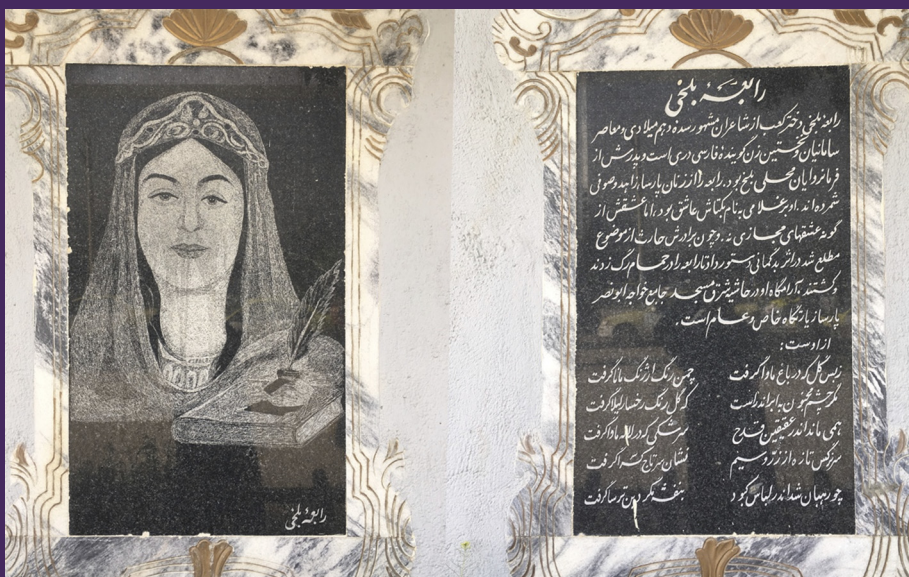 رابعهٔ بلخی
رابعهٔ بلخی
رابعه بلخی دختر کعب از شاعران مشهور سده دهم میلادی و معاصر
سامانیان و نخستین زن گویندهٔ فارسی دری است و پدرش از
فرمانروایان محلی بلخ بود. رابعه را از زنان پارسا زاهد و صوفی
شمرده اند. او بر غلامی به نام بکتاش عاشق بود، اما عشقش از
گونه عشقهای مجازی نه. و چون برادرش حارث از موضوع
مطلع شد در اثر بدگمانی دستور داد تا رابعه را در حمام رگ زدند
و کشتند. آرامگاه او در حاشیه شرق مسجد جامع خواجه ابونصر
پارسا زیارتگاه خاص و عام است.
از اوست:
زبس گل که در باغ ماوا گرفت چمن رنگ ارژنگ مانا گرفت
مگر چشم مجنون به ابر اندر است که گل رنگ رخسار لیلا گرفت
همی ماند اندر عقیقین قدح سرشکی که در لاله ماوا گرفت
سر نرگس تازه از زر و سیم نشان سر تاج کسرا گرفت
چو رهبان شد اندر لباس کبود بنفشه مگر دین ترسا گرفت